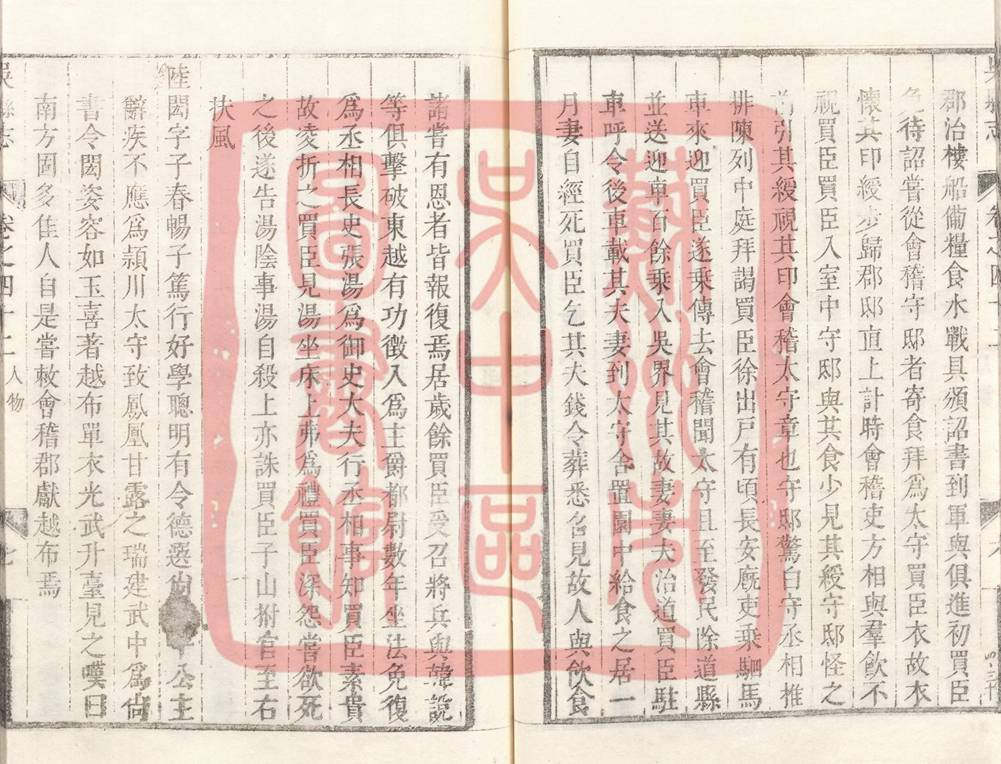 郡治樓船備糧食水戰具須詔書到軍與俱進初買臣
免待詔嘗從會稽守邸者寄食拜爲太守買臣衣故衣
懷其印綬步歸郡邸直上計時會稽吏方相與羣飲不
視買臣買臣入室中守邸與其食少見其綬守邸怪之
前引其綬視其印會稽太守章也守邸驚白守丞相推
排陳列中庭拜謁買臣徐出戸有頃長安廐吏乘駟馬
車來迎買臣遂乘傳去會稽聞太守且至發民除道縣
並送迎車百餘乘入吳界見其故妻妻夫治道買臣駐
車呼令後車載其夫妻到太守舍置園中給食之居一
月妻自經死買臣乞其夫錢令葬悉召見故人與飲食
諸嘗有恩者皆報復焉居歲餘買臣受召將兵與韓說
等俱擊破東越有功徵入爲主爵都尉數年坐法免復
爲丞相長史張湯爲御史大夫行丞相事知買臣素貴
故凌折之買臣見湯坐床上弗爲禮買臣深怨嘗欲死
之後遂告湯陰事湯自殺上亦誅買臣子山拊官至右
扶風
陸閎字子春暢子篤行好學聰明有令德選尚 公主
辭疾不應爲潁川太守致鳳凰甘露之瑞建武中爲尙
書令閎姿容如玉喜著越布單衣光武升臺見之嘆曰
南方固多佳人自是嘗敕會稽郡獻越布焉
吳縣志 卷之四十二 人物 七
蘇州市
吳中區
圖書館